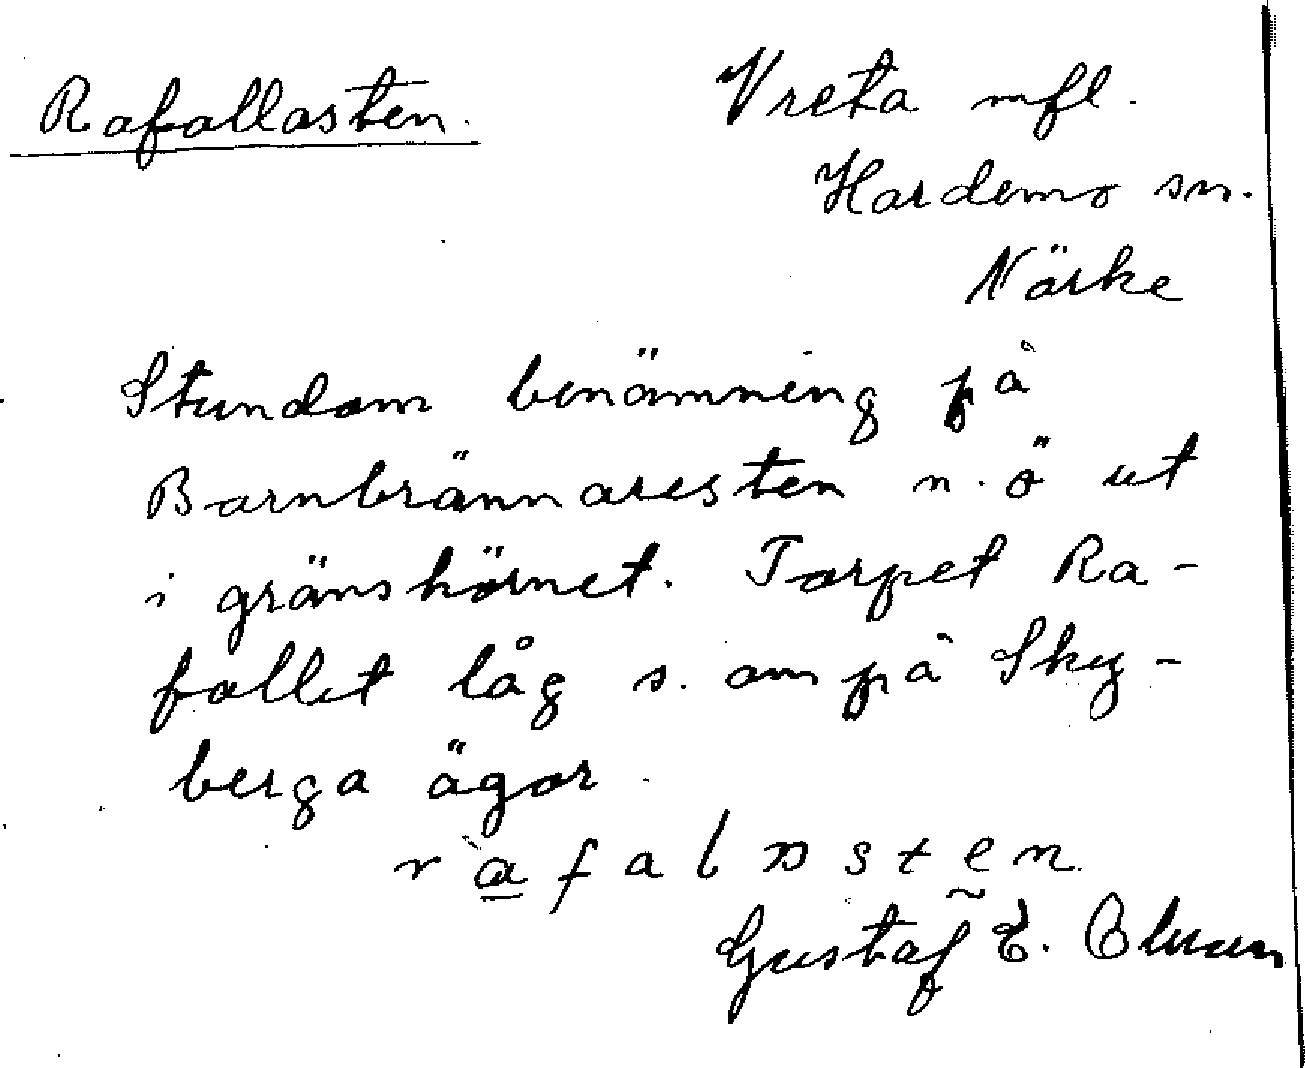 Rafallasten.
Vreta mfl.
Hardemo sn.
Närke
Stundom benämning på
Barnbrännaresten n.ö ut
i gränshörnet. Torpet Ra-
fallet låg s. om på Sky-
berga ägor
Gustaf E.